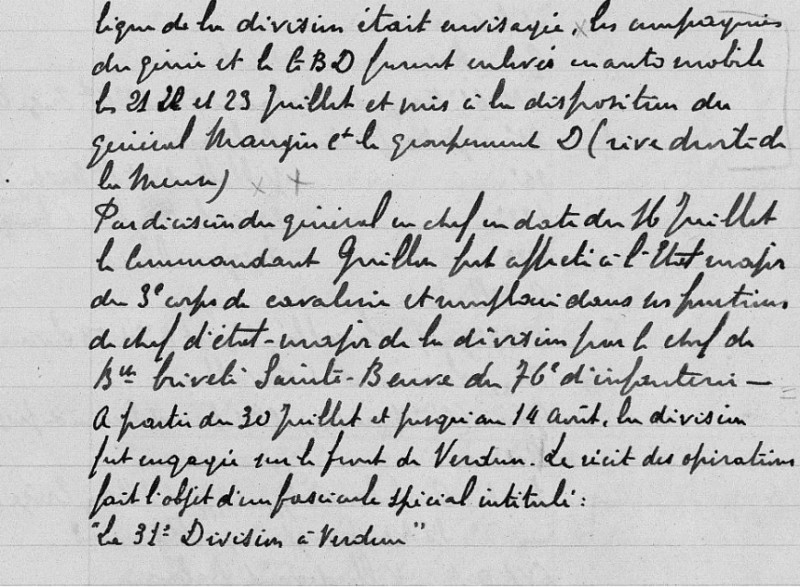 ligne de la division était envisagée, les compagnies
du génie et le GBD furent enlevés en automobile
les 21 22 et 23 Juillet et mis à la disposition du
général Mangin Ct le groupement D (rive droite de
la Meuse)
Par décision du général en chef en date du 16 Juillet
le Commandant Guillon fut affecté à l'Etat major
du 3e corps de cavalerie et remplacé dans ses fonctions
de chef d'état-major de la division par le chef de
Bon breveté Sainte-Beuve du 76e d'infanterie —
A partir du 30 Juillet et jusqu'au 14 Août, la division
fut engagée sur le front de Verdun. Le récit des opérations
fait l'objet d'un fascicule spécial intitulé :
"La 31e Division à Verdun"